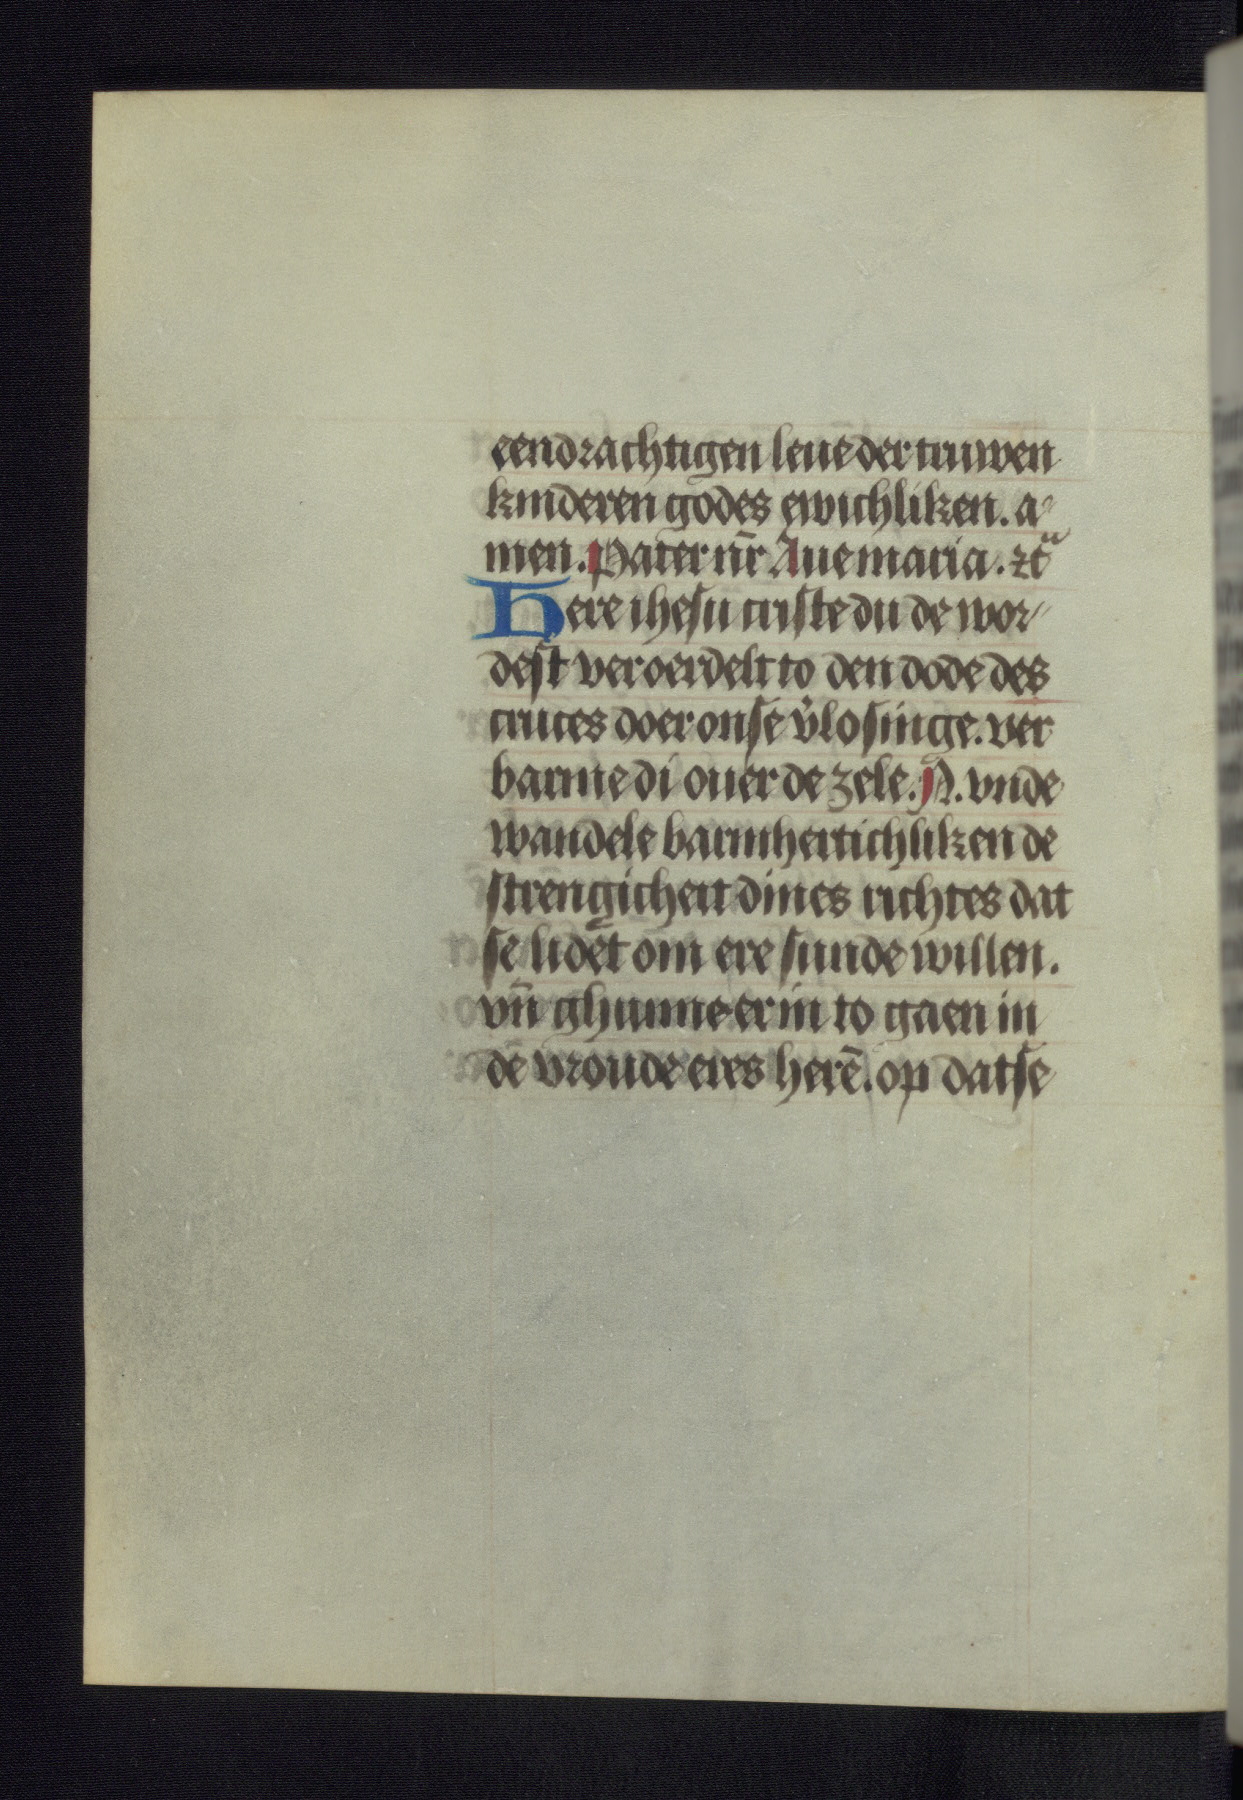 eendrachtigen leue der truwen
kinderen godes ewichliken. a-
men. Pater nr̄ Aue maria. ⁊c̄
Here ihesu criste du de wor-
dest veroerdelt to den dode des
cruces doer onse v̄losinge. ver
barme di ouer de zele. N. vnde
wandele barmhertichliken de
strengicheit dines richtes dat
se lidet om ere sunde willen.
vn̄ ghunne er in to gaen in
de vroude eres herē. op dat se